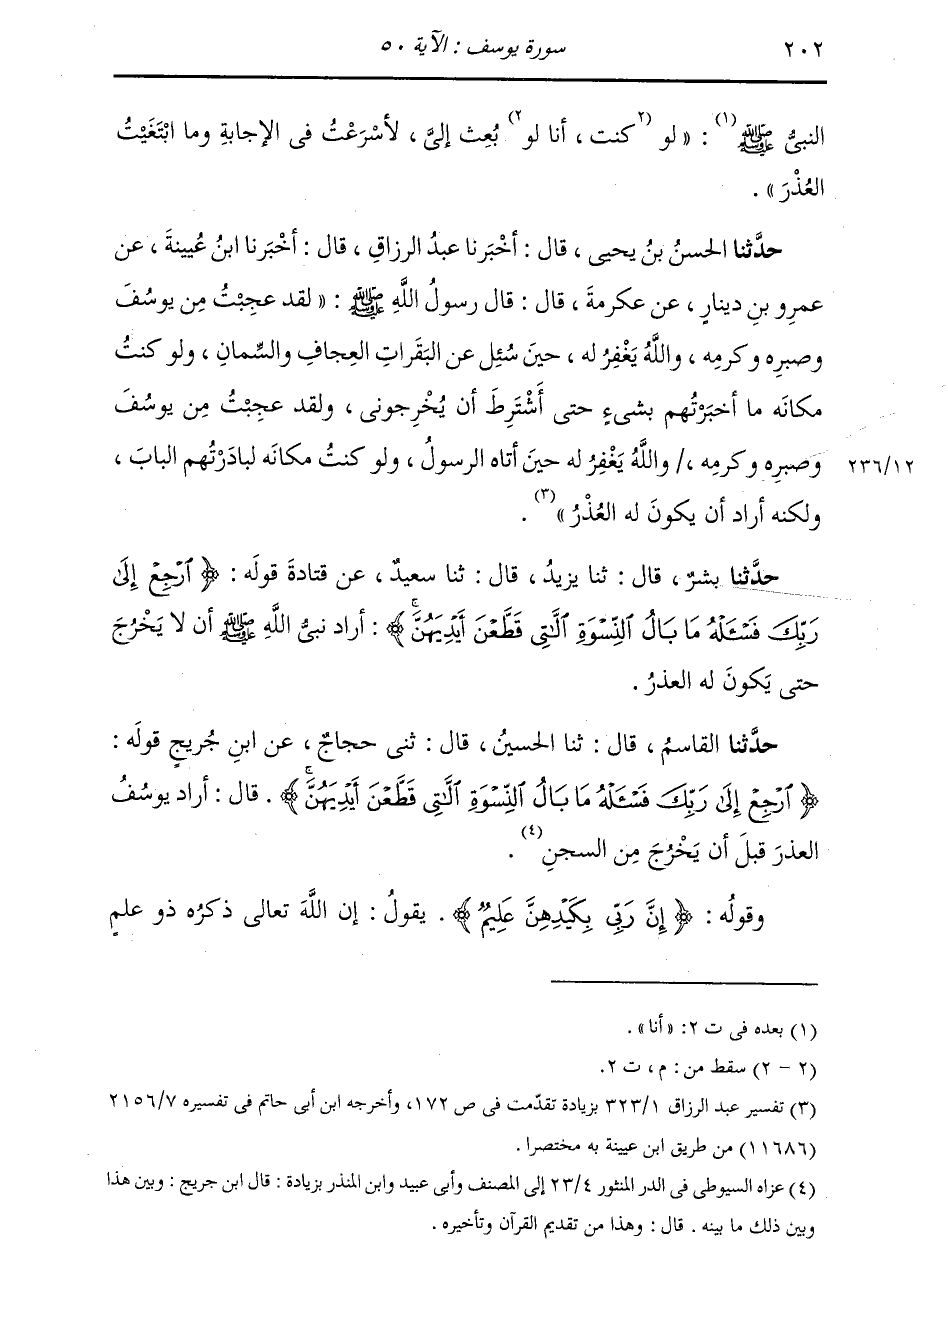 ٢٠٢ سورة يوسف : الآية ٥٠
النبىُّ ﷺ(١) : « لو (٢كنت ، أنا لو٢) بُعِث إلىَّ ، لأسْرَعْتُ فى الإجابةِ وما ابْتَغَيْتُ
العُذْرَ » .
حدَّثنا الحسنُ بنُ يحيى ، قال : أخْبَرنا عبدُ الرزاقِ ، قال : أخْبَرنا ابنُ عُيينةَ ، عن
عمرِو بنِ دينارٍ ، عن عكرمةَ ، قال : قال رسولُ اللَّهِ ﷺ : « لقد عجِبْتُ مِن يوسُفَ
وصبرِه وكرمِه ، واللَّهُ يَغْفِرُ له ، حينَ سُئِل عن البَقَراتِ العِجافِ والسِّمانِ ، ولو كنتُ
مكانَه ما أخبَرْتُهم بشىءٍ حتى أَشْتَرِطَ أن يُخْرِجونى ، ولقد عجِبْتُ مِن يوسُفَ
وصبرِه وكرمِه ،/ واللَّهُ يَغْفِرُ له حينَ أتاه الرسولُ ، ولو كنتُ مكانَه لبادَرْتُهم البابَ ، ٢٣٦/١٢
ولكنه أراد أن يكونَ له العُذْرُ »(٣) .
حدَّثنا بشرٌ ، قال : ثنا يزيدُ ، قال : ثنا سعيدٌ ، عن قتادةَ قولَه : ﴿ ٱرْجِعْ إِلَىٰ
رَبِّكَ فَسْـَٔلْهُ مَا بَالُ ٱلنِّسْوَةِ ٱلَّـٰتِى قَطَّعْنَ أَيْدِيَهُنَّۚ ﴾ : أراد نبىُّ اللَّهِ ﷺ أن لا يَخْرُجَ
حتى يَكونَ له العذرُ .
حدَّثنا القاسمُ ، قال : ثنا الحسينُ ، قال : ثنى حجاجٌ ، عن ابنِ جُريجٍ قولَه :
﴿ ٱرْجِعْ إِلَىٰ رَبِّكَ فَسْـَٔلْهُ مَا بَالُ ٱلنِّسْوَةِ ٱلَّـٰتِى قَطَّعْنَ أَيْدِيَهُنَّۚ ﴾ . قال : أراد يوسُفُ
العذرَ قبلَ أن يَخْرُجَ مِن السجنِ(٤) .
وقولُه : ﴿ إِنَّ رَبِّى بِكَيْدِهِنَّ عَلِيمٌ ﴾ . يقولُ : إن اللَّهَ تعالى ذكرُه ذو علمٍ
(١) بعده فى ت ٢: « أنا » .
(٢ - ٢) سقط من : م ، ت ٢.
(٣) تفسير عبد الرزاق ٣٢٣/١ بزيادة تقدّمت فى ص ١٧٢، وأخرجه ابن أبى حاتم فى تفسيره ٢١٥٦/٧
(١١٦٨٦) من طريق ابن عيينة به مختصرا .
(٤) عزاه السيوطى فى الدر المنثور ٢٣/٤ إلى المصنف وأبى عبيد وابن المنذر بزيادة : قال ابن جريج : وبين هذا
وبين ذلك ما بينه . قال : وهذا من تقديم القرآن وتأخيره .